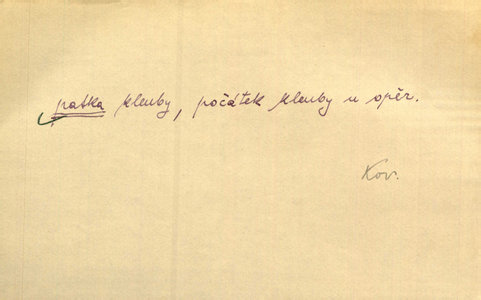 patka klenby, počátek klenby u opěr.
Kov.